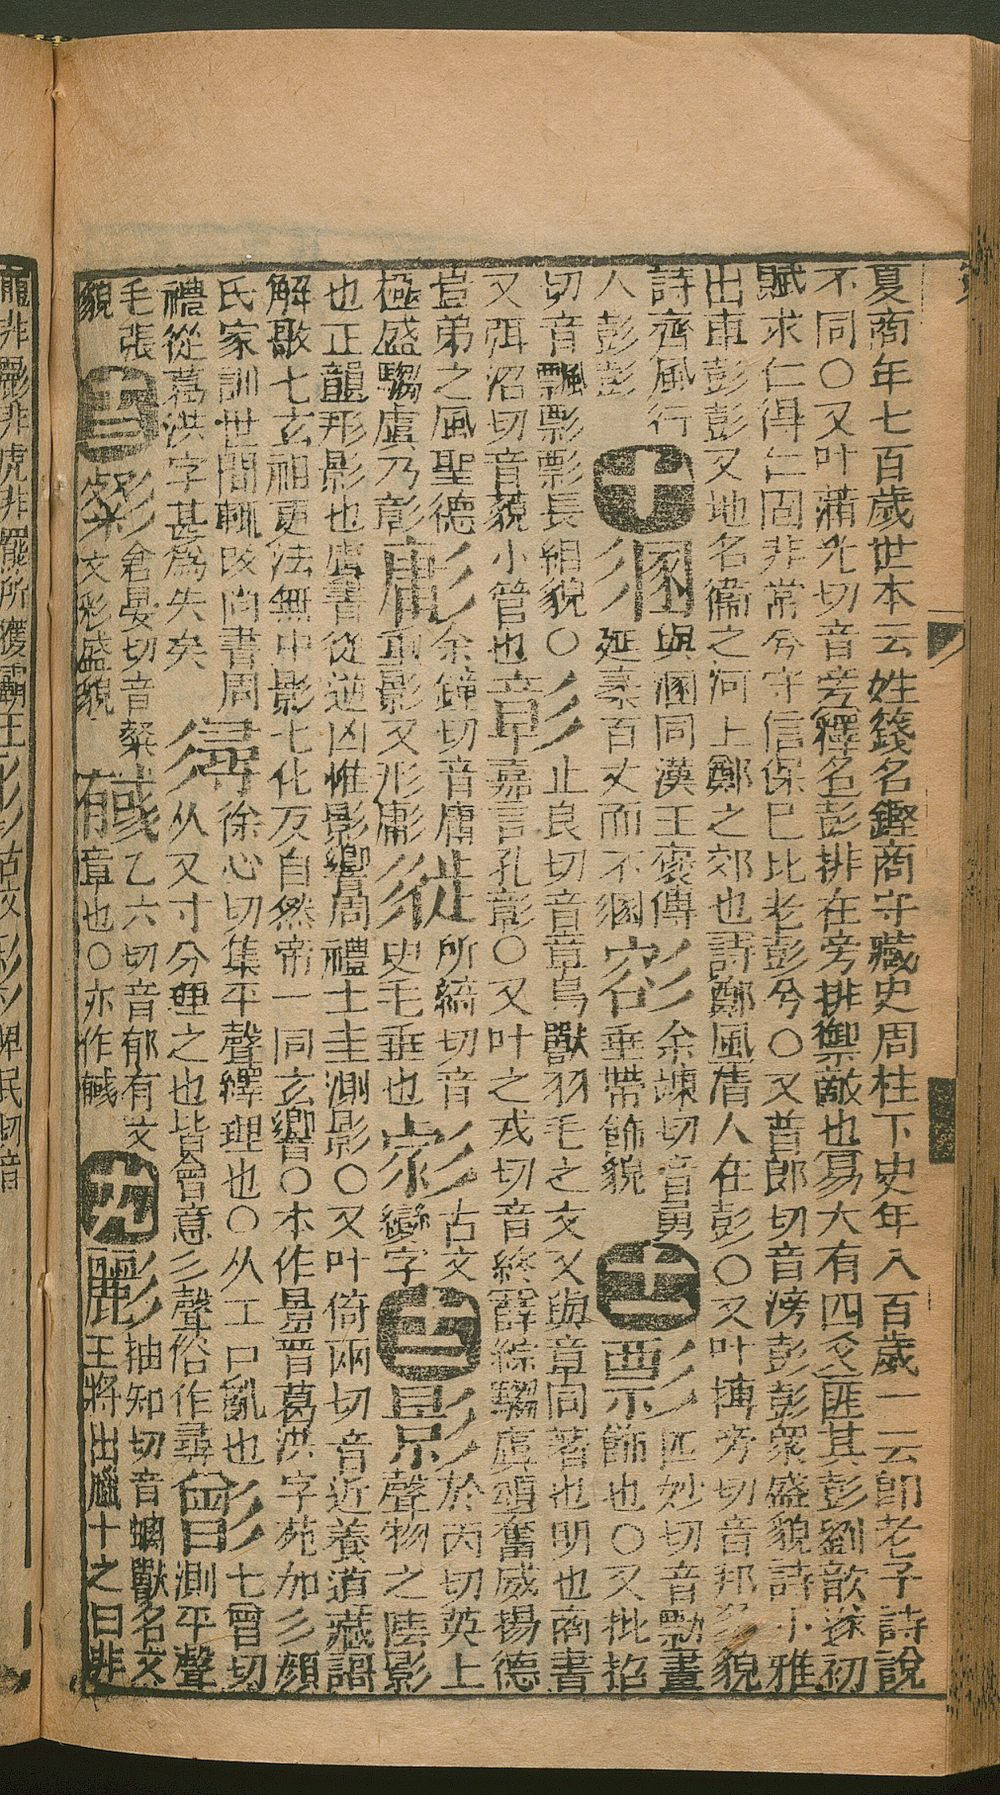 夏商年七百歲世本云姓籛名鏗商守藏史周柱下史年八百歲一云卽老子詩說
不同○又叶蒲光切音旁釋名彭排在旁排禦敵也易大有四爻匪其彭劉歆遂初
賦求仁得仁固非常兮守信保已比老彭兮○又普郎切音滂彭彭眾盛貌詩小雅
出車彭彭又地名衞之河上鄭之郊也詩鄭風清人在彭○又叶博旁切音邦多貌
詩齊風行
人彭彭
十
與㴫同漢王褒傳
延袤百丈而不溷
余竦切音勇
垂帶飾貌
十一
彯匹妙切音勡畫
飾也○又批招
切音飄彯彯長組貌○彰止良切音章鳥獸羽毛之文又與章同著也明也商書
又弭沼切音藐小管也嘉言孔彰○又叶之戎切音終薛綜騶虞頌奮威揚德
豈弟之風聖德
極盛騶虞乃彰
余鐘切音庸
重影又形庸
所銜切音
史毛垂也
古文
變字
十二
影於丙切英上
聲物之陰影
也正韻形影也虞書從逆凶惟影響周禮土圭測影○又叶倚兩切音近養道藏謌
解歌七玄祖更法無中影七化反自然帝一同玄響○本作景晉葛洪字苑加彡顔
氏家訓世間輒改尚書周
禮從葛洪字甚爲失矣
徐心切集平聲繹理也○从工口亂也
从又寸分理之也皆會意彡聲俗作尋
七曾切
測平聲
毛張
貌
十三
倉晏切音粲
文彩盛貌
乙六切音郁有文
章也○亦作戫
十九
彲抽知切音螭獸名文
王將出獵卜之曰非
龍非彲非虎非羆所獲霸王